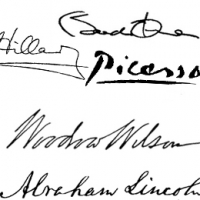 Hillary
Picasso
Woodrow Wilson
Abraham Lincoln